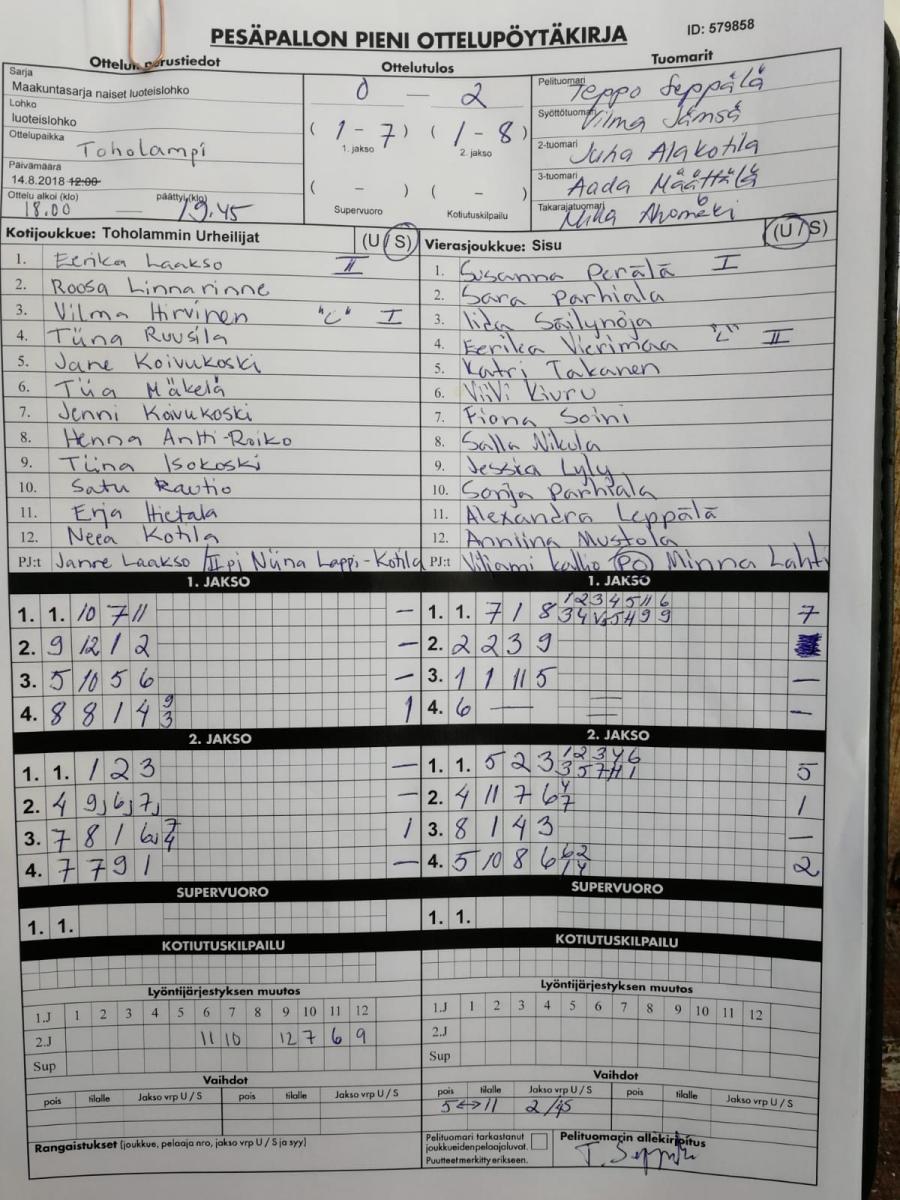 PESÄPALLON PIENI OTTELUPÖYTÄKIRJA ID: 579858
Ottelun perustiedot Ottelutulos Tuomarit
Sarja
Maakuntasarja naiset luoteislohko
Lohko
luoteislohko
Ottelupaikka Toholampi
Päivämäärä
14.8.2018 12:00
Ottelu alkoi (klo) päättyi (klo)
18.00 — 19.45
0 — 2
( 1 - 7 ) ( 1 - 8 )
1. jakso 2. jakso
( - ) ( - )
Supervuoro Kotiutuskilpailu
Pelituomari Teppo Seppälä
Syöttötuomari Vilma Jämsä
2-tuomari Juha Alakotila
3-tuomari Aada Määttälä
Takarajatuomari Milla Ahomäki
Kotijoukkue: Toholammin Urheilijat (U / S)
1. Eerika Laakso II
2. Roosa Linnarinne
3. Vilma Hirvinen "C" I
4. Tiina Ruusila
5. Jane Koivukoski
6. Tiia Mäkelä
7. Jenni Koivukoski
8. Henna Antti-Roiko
9. Tiina Isokoski
10. Satu Rautio
11. Erja Hietala
12. Neea Kotila
PJ:t Janne Laakso IIpj Niina Lappi-Kotila
Vierasjoukkue: Sisu (U / S)
1. Susanna Perälä I
2. Sara Parhiala
3. Iida Säilynoja
4. Eerika Vierimaa "C" II
5. Katri Takanen
6. Viivi Kivru
7. Fiona Soini
8. Salla Nikula
9. Jessica Lyly
10. Sonja Parhiala
11. Alexandra Leppälä
12. Anniina Mustola
PJ:t Viljami Kallio PO Minna Lahti
1. JAKSO
1. 1. 10 7 11 —
2. 9 12 1 2 —
3. 5 10 5 6 —
4. 8 8 1 4 9 3 1
1. JAKSO
1. 1. 7 1 8 1 2 3 4 5 11 6 7
2. 2 2 3 9
3. 1 1 11 5 —
4. 6 — —
2. JAKSO
1. 1. 1 2 3 —
2. 4 9, 6, 7, —
3. 7 8 1 6, 7 4 1
4. 7 7 9 1 —
2. JAKSO
1. 1. 5 2 3 1 2 3 4 6 5
2. 4 11 7 6 4 7 1
3. 8 1 4 3 —
4. 5 10 8 6 6 2 1 4 2
SUPERVUORO
1. 1.
SUPERVUORO
1. 1.
KOTIUTUSKILPAILU
KOTIUTUSKILPAILU
Lyöntijärjestyksen muutos
1.J 1 2 3 4 5 6 7 8 9 10 11 12
2.J 11 10 12 7 6 9
Sup
Lyöntijärjestyksen muutos
1.J 1 2 3 4 5 6 7 8 9 10 11 12
2.J
Sup
Vaihdot
pois tilalle Jakso vrp U / S pois tilalle Jakso vrp U / S
Vaihdot
pois tilalle Jakso vrp U / S pois tilalle Jakso vrp U / S
5 ↔ 11 2/4S
Rangaistukset (joukkue, pelaaja nro, jakso vrp U / S ja syy)
Pelituomari tarkastanut
joukkueiden pelaajaluvat.
Puutteet merkitty erikseen.
Pelituomarin allekirjoitus